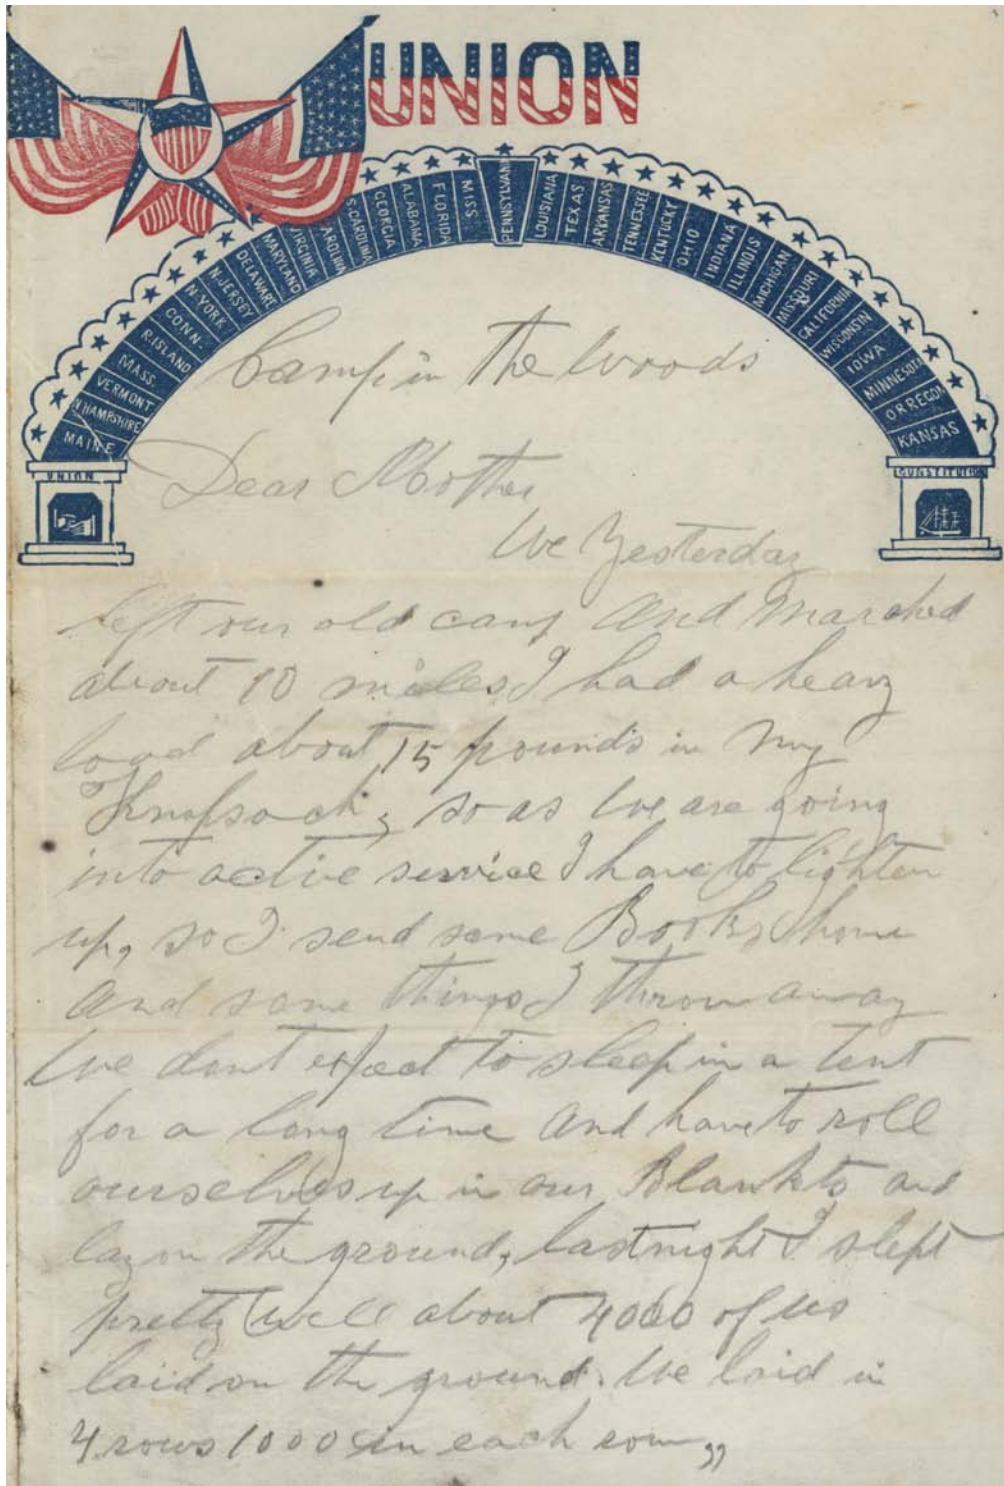 UNION
MAINE
N HAMPSHIRE
VERMONT
MASS.
R.ISLAND
CONN.
N.YORK
N.JERSEY
DELAWARE
MARYLAND
VIRGINIA
CAROLINA
S.CAROLINA
GEORGIA
ALABAMA
FLORIDA
MISS
PENNSYLVANI
LOUISIANA
TEXAS
ARKANSAS
TENNESSEE
KENTUCKY
OHIO
INDIANA
ILLINOIS
MICHIGAN
MISSOURI
CALIFORNIA
WISCONSIN
IOWA
MINNESOTA
ORREGON
KANSAS
UNION
CONSTITUTION
Camp in the Woods
Dear Mother
We Yesterday
left our old camp and marched
about 10 miles I had a heavy
load about 15 pounds in my
Knapsack, so as we are going
into active service I have to lighten
up, so I send some Books home
and some things I throw away
We dont expect to sleep in a tent
for a long time and have to roll
ourselves up in our Blankts and
lay on the ground, last night I slept
pretty well about 4000 of us
laid on the ground. We laid in
4 rows 1000 in each row,,